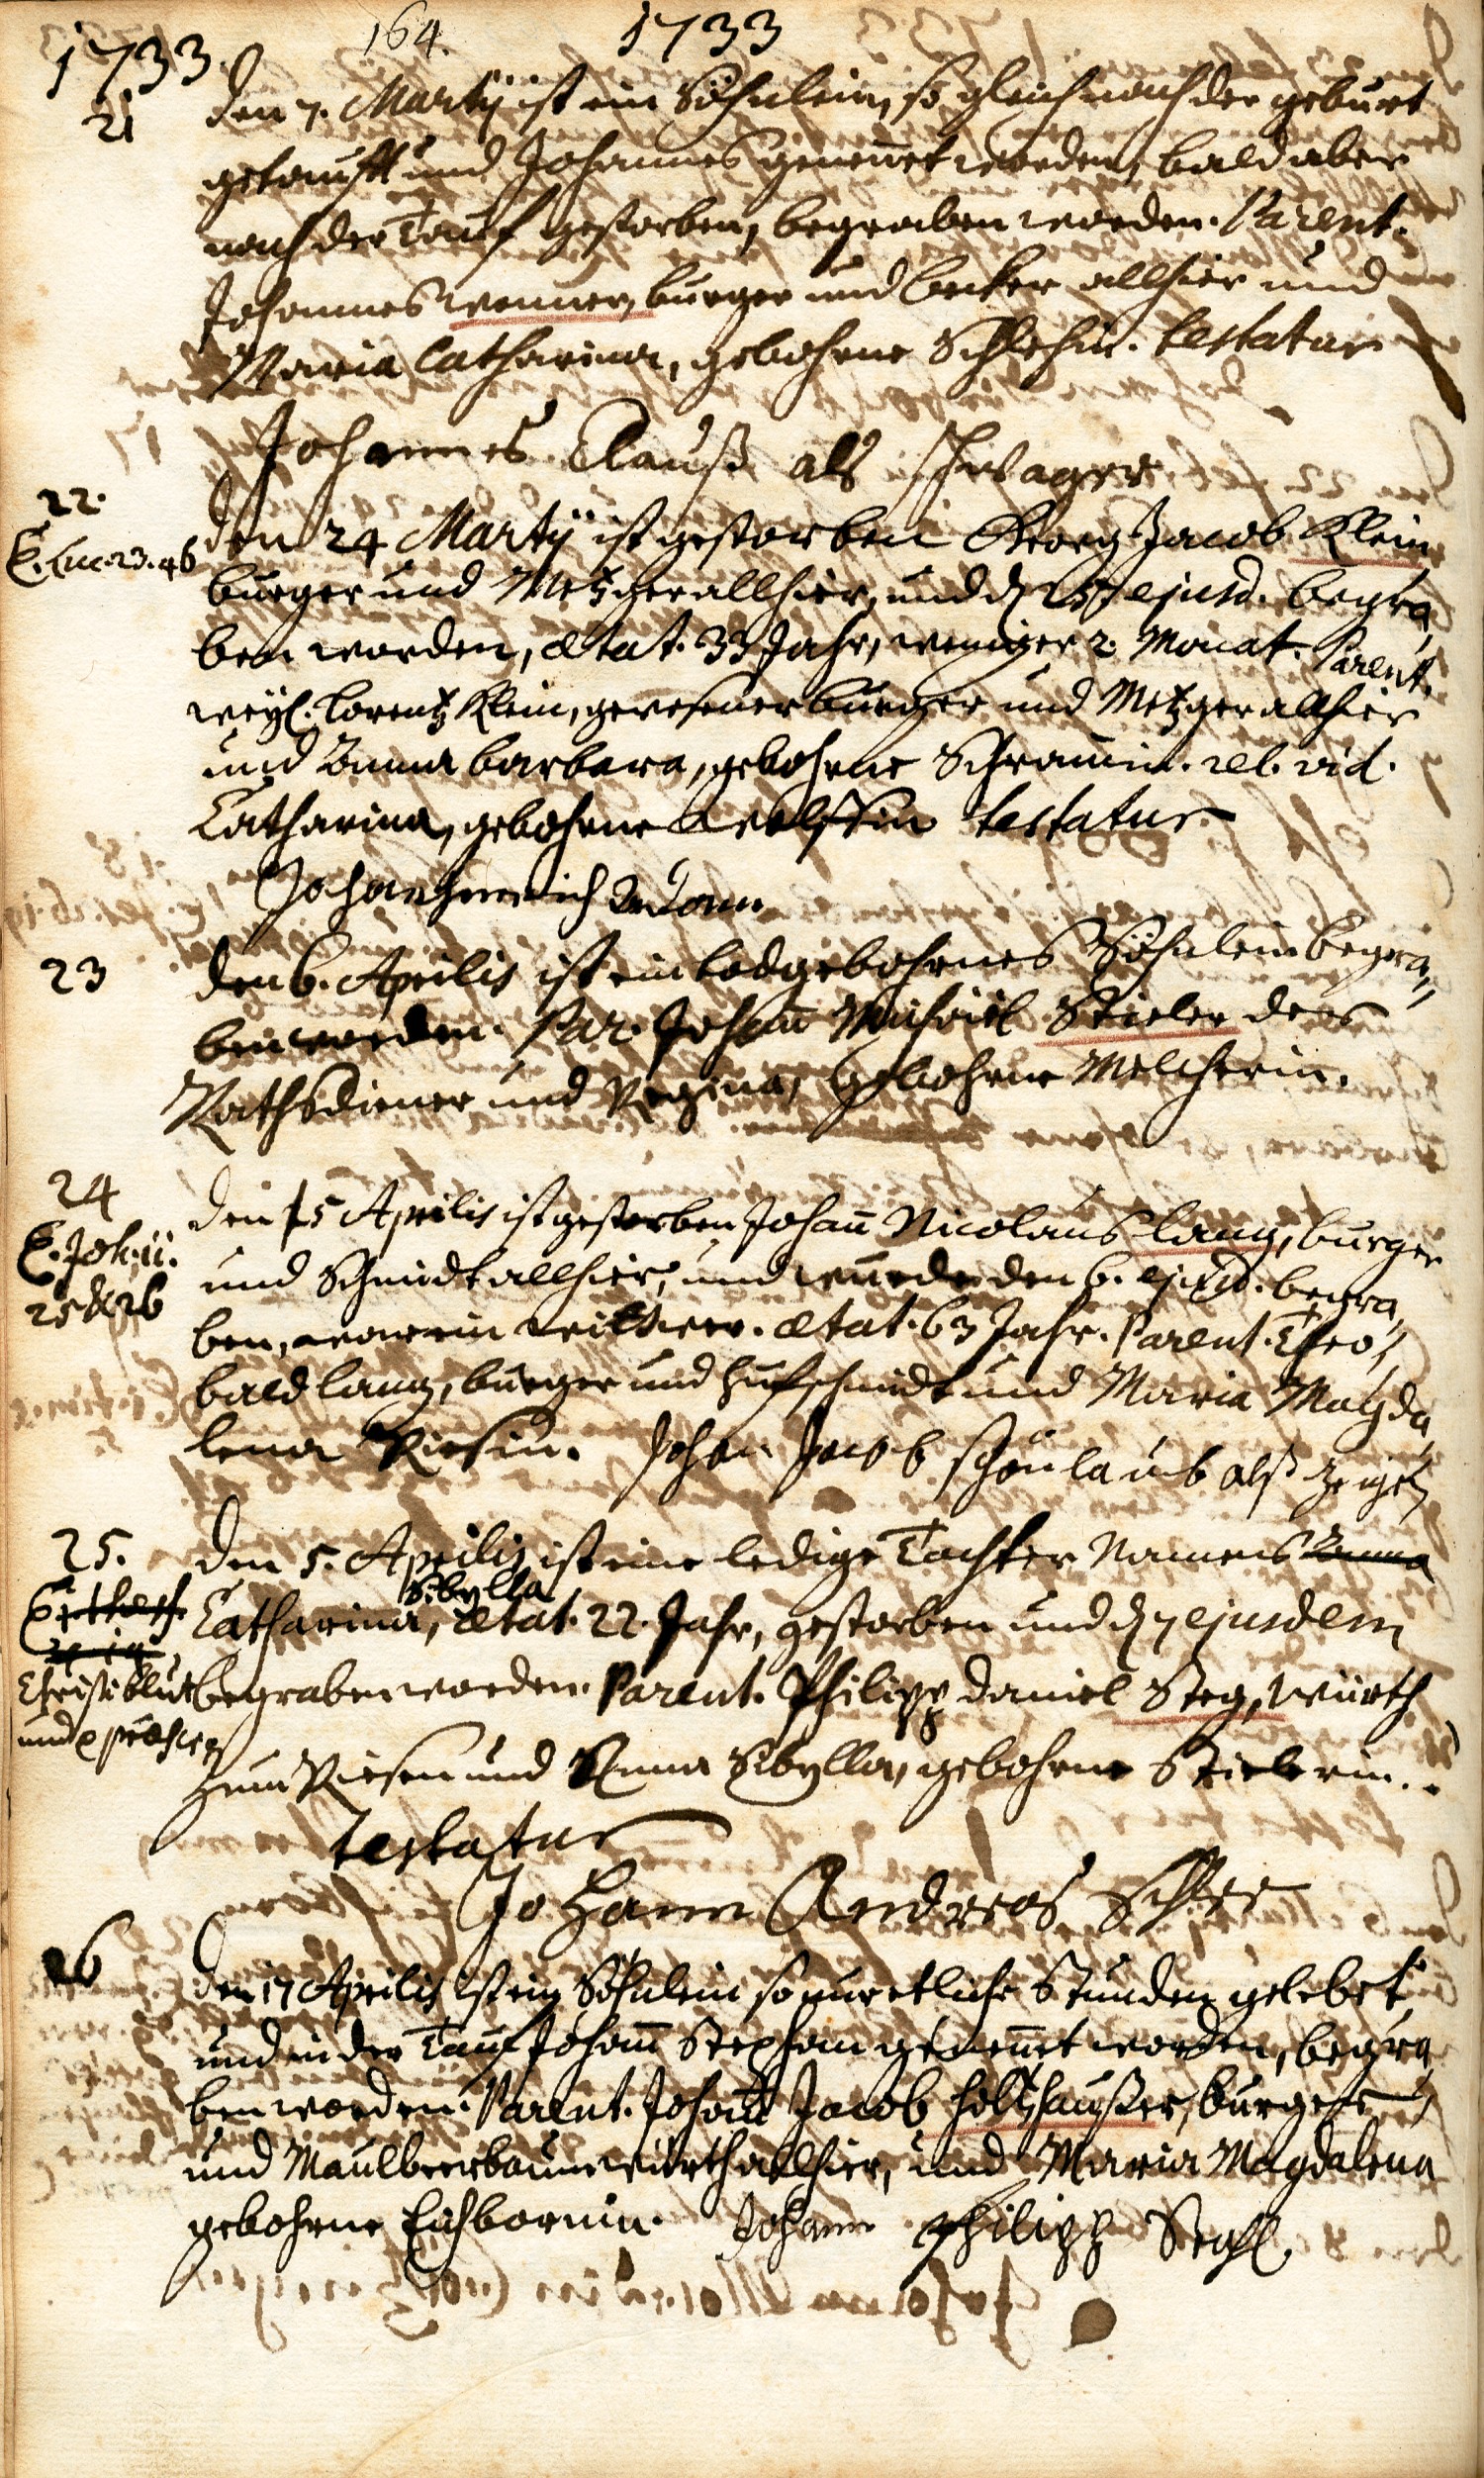 164.
1733 1733
21 den 7. Martij ist ein Söhnlein, so gleich nach der geburt
getaufft und Johannes genennet worden, bald aber
nach der Tauf gestorben, begraben worden. Parent.
Johannes burger und becker allhier und
Maria Catharina, gebohrne testatur
Johannes Clauß als schwager
22. den 24 Martij ist gestorben Georg Jacob Klein
E. Luc. 23. 46 burger und Metzger allhier, und d. ejusd. begra
ben worden, ætat. 33 Jahr, weniger 2 Monat. Parent.
weyl. Lorentz Klein, gewesener burger und Metzger allhier
und Anna barbara, gebohrne Schrammin. rel. vid.
Catharina, gebohrne testatur
Johan henrich
23 den 6. Aprilis ist ein todgebohrnes Söhnlein begra
ben worden. Par. Johann Michäel Stieler der
Rathsdiener und Regina, gebohrne Melcherin.
24 den 5 Aprilis ist gestorben Johann Nicolaus Lang, burger
E. Joh. 11. und Schmidt allhier, und wurde den 6. ejusd. begra
25 & 26 ben, war ein wittwer. ætat. 63 Jahr. Parent. Theo
bald Lang, burger und hufschmidt und Maria Magda
lena Riesin. Johan Jacob schönlaub alß zeigen
25. den 5. Aprilis ist eine ledige Tochter Namens Anna
Sibylla
Catharina, ætat. 22. Jahr, gestorben und d. 7 ejusdem
Christi blut begraben worden. Parent. Philipp Daniel Steg, würth
und
zum Riesen und Anna Sibylla, gebohrne Stielerin.
testatur
Johann Andreas Schlee
26 den 17 Aprilis ist ein Söhnlein so nur etliche Stunden gelebet
und in der Tauf Johann Stephan genennet worden, begra
ben worden. Parent. Johann Jacob Holtzhaußer, burger
und Maulbeerbaumwürth allhier, und Maria Magdalena
gebohrne Eichbornin. Johann Philipp